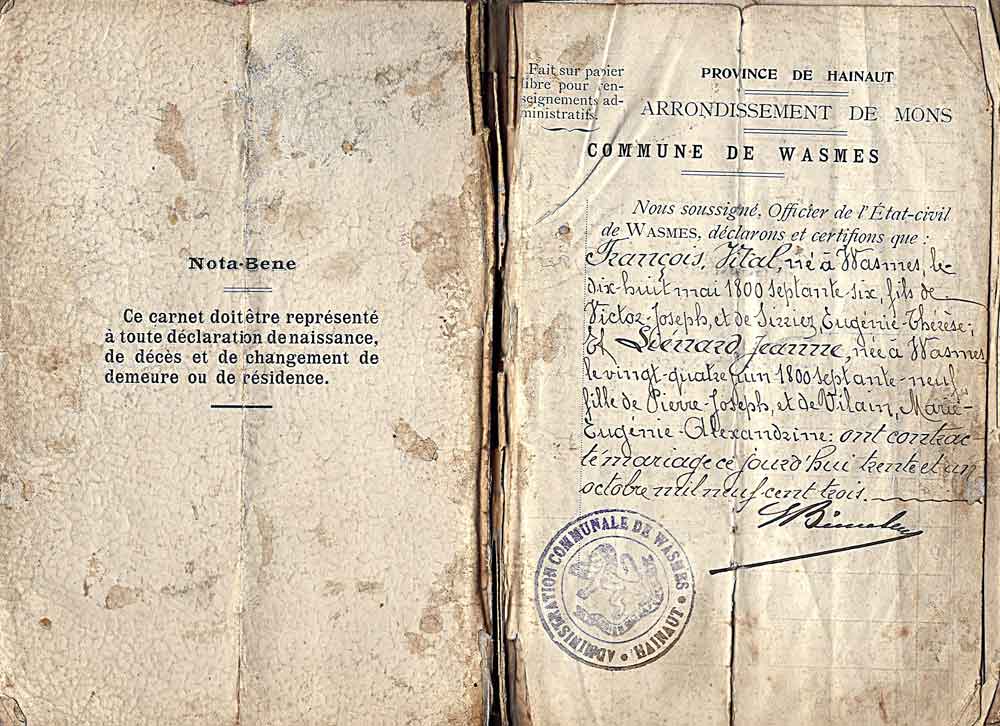 Nota-Bene
Ce carnet doit être représenté
à toute déclaration de naissance,
de décès et de changement de
demeure ou de résidence.
Fait sur papier
libre pour ren-
seignements ad-
ministratifs.
PROVINCE DE HAINAUT
ARRONDISSEMENT DE MONS
COMMUNE DE WASMES
Nous soussigné, Officier de l'État-civil
de WASMES, déclarons et certifions que :
François, Vital, né à Wasmes, le
dix-huit mai 1800 septante-six, fils de
Victor-Joseph, et de Sirriez, Eugénie-Thérèse;
Et Liénard, Jeanne, née à Wasmes
le vingt-quatre juin 1800 septante-neuf,
fille de Pierre-Joseph, et de Vilain, Marie-
Eugénie-Alexandrine: ont contrac-
té mariage ce jourd'hui trente et un
octobre mil neuf-cent trois.
ADMINISTRATION COMMUNALE DE WASMES • HAINAUT •